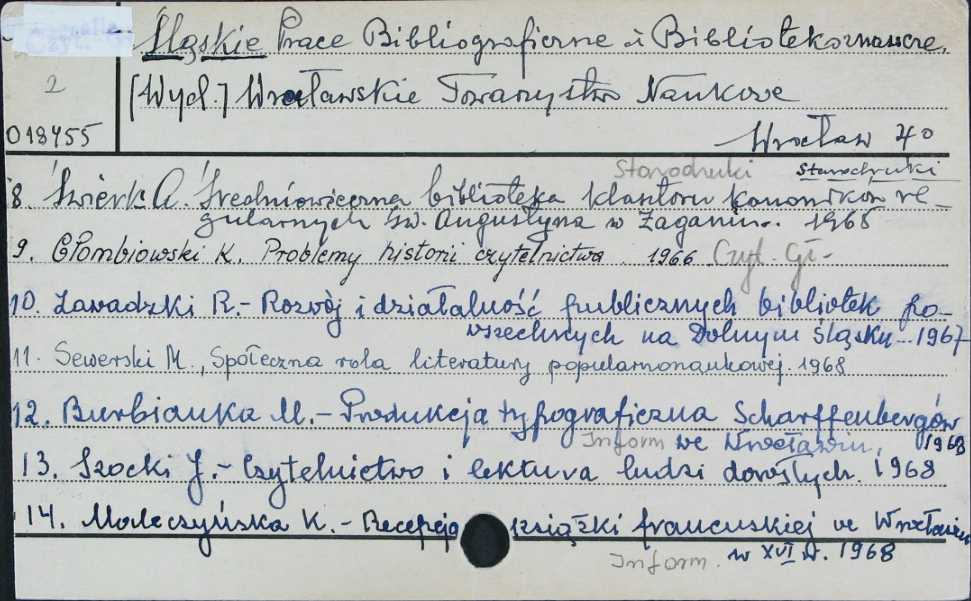 Śląskie Prace Bibliograficzne i Bibliotekoznawcze.
2
[Wyd.] Wrocławskie Towarzystwo Naukowe
018455
Wrocław 4°
Starodruki Starodruki
8. Świerk A. Średniowieczna biblioteka klasztoru kanoników re-
gularnych św. Augustyna w Żaganiu. 1965
9. Głombiowski K. Problemy historii czytelnictwa. 1966 Czyt. Gł-
10. Zawadzki R.- Rozwój i działalność publicznych bibliotek po-
wszechnych na Dolnym Śląsku. 1967
11. Sewerski M., Społeczna rola literatury popularnonaukowej. 1968
12. Burbianka M.- Produkcja typograficzna Scharffenbergów
Inform we Wrocławiu, 1968
13. Szocki J.- Czytelnictwo i lektura ludzi dorosłych. 1968
14. Maleczyńska K.- Recepcja książki francuskiej we Wrocławiu
Inform. w XVI w. 1968